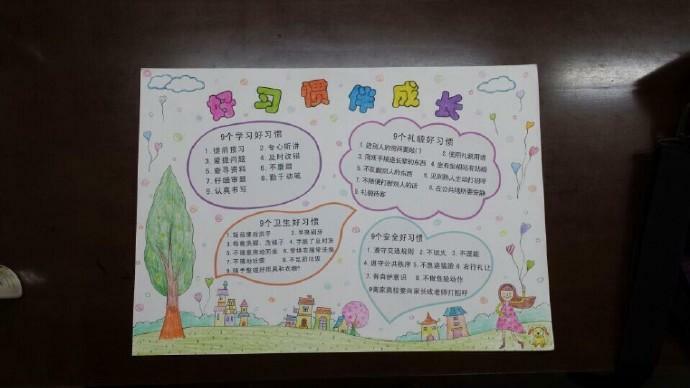 好习惯伴成长
9个学习好习惯
1. 提前预习 2. 专心听讲
3. 爱提问题 4. 及时改错
5. 查寻资料 6. 不磨蹭
7. 仔细审题 8. 勤于动笔
9. 认真书写
9个礼貌好习惯
1. 进别人的房间要敲门 2. 使用礼貌用语
3. 用双手接递长辈的东西 4. 坐有坐相站有站相
5. 不乱翻别人的东西 6. 见到熟人主动打招呼
7. 不随便打断别人的话 8. 在公共场所要安静
9. 礼貌待客
9个卫生好习惯
1. 饭前便后洗手 2. 早晚刷牙
3. 每晚洗脚、洗袜子 4. 手脏了及时洗
5. 不随意席地而坐 6.
7. 不随地吐痰 8. 不乱扔垃圾
9. 随手整理好用具和衣物
9个安全好习惯
1. 遵守交通规则 2. 不玩火 3. 不逗能
4. 遵守公共秩序 5. 不急追猛跑 6 右行礼让
7. 有自护意识 8. 不做危险动作
9离家离校要向家长或老师打招呼